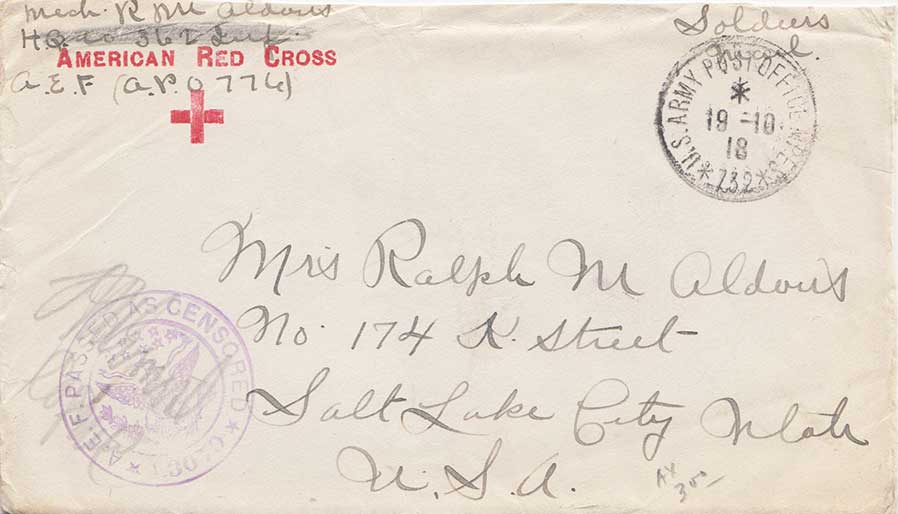 Mech. R M Aldous
HQ Co 362 Inf.
AMERICAN RED CROSS
A.E.F (A.P.O 776)
Soldiers
Mail.
U.S. ARMY POST OFFICE M.P.E.S.
19-10
18
*732*
Mrs Ralph M Aldous
No. 174 K. Street
Salt Lake City Utah
U.S.A.
A.E.F. PASSED AS CENSORED
3 00